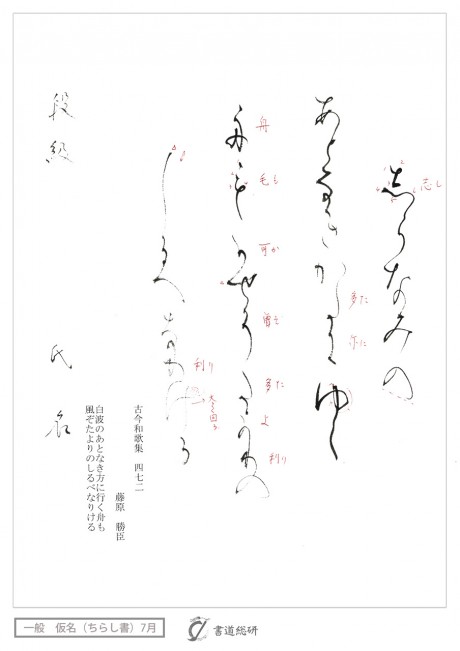 志らなみの
志し
あとなきか多尓ゆく
多た
尓に
舟毛可せ曽多よ利の
舟
毛も
可か
曽そ
多た
よ
利り
しるへな利ける
利り
古今和歌集　四七二
藤原　勝臣
白波のあとなき方に行く舟も
風ぞたよりのしるべなりける
段級　氏名
一般　仮名（ちらし書）7月
書道総研